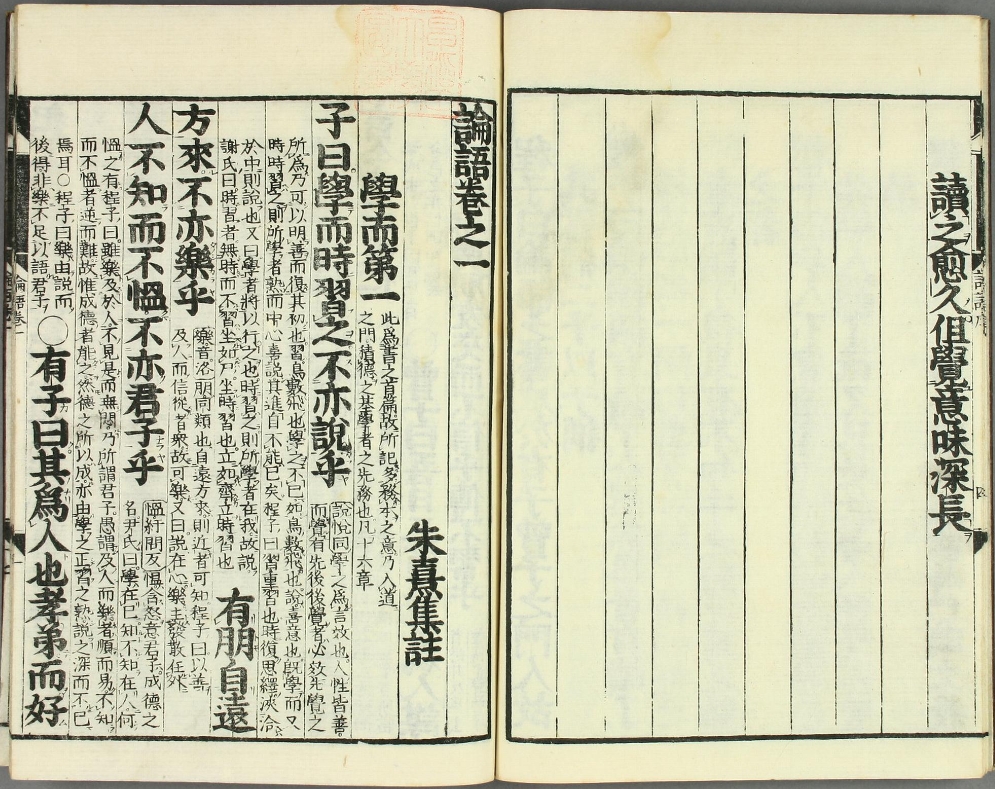 讀之愈久但覺意味深長
論語卷之一
朱熹集註
學而第一
此爲書之首篇故所記多務本之意乃入道
之門積德之基學者之先務也凡十六章
子曰學而時習之不亦說乎
說悅同學之爲言效也人性皆善
而覺有先後後覺者必效先覺之
所爲乃可以明善而復其初也習鳥數飛也學之不已如鳥數飛也說喜意也旣學而又
時時習之則所學者熟而中心喜說其進自不能已矣程子曰習重習也時復思繹浹洽
於中則說也又曰學者將以行之也時習之則所學者在我故說
謝氏曰時習者無時而不習坐如尸坐時習也立如齊立時習也
有朋自遠
方來不亦樂乎
樂音洛朋同類也自遠方來則近者可知程子曰以善
及人而信從者衆故可樂又曰說在心樂主發散在外
人不知而不慍不亦君子乎
慍紆問反慍含怒意君子成德之
名尹氏曰學在己知不知在人何
慍之有程子曰雖樂及於人不見是而無悶乃所謂君子愚謂及人而樂者順而易不知
而不慍者逆而難故惟成德者能之然德之所以成亦由學之正習之熟說之深而不已
焉耳○程子曰樂由說而
後得非樂不足以語君子
○有子曰其爲人也孝弟而好